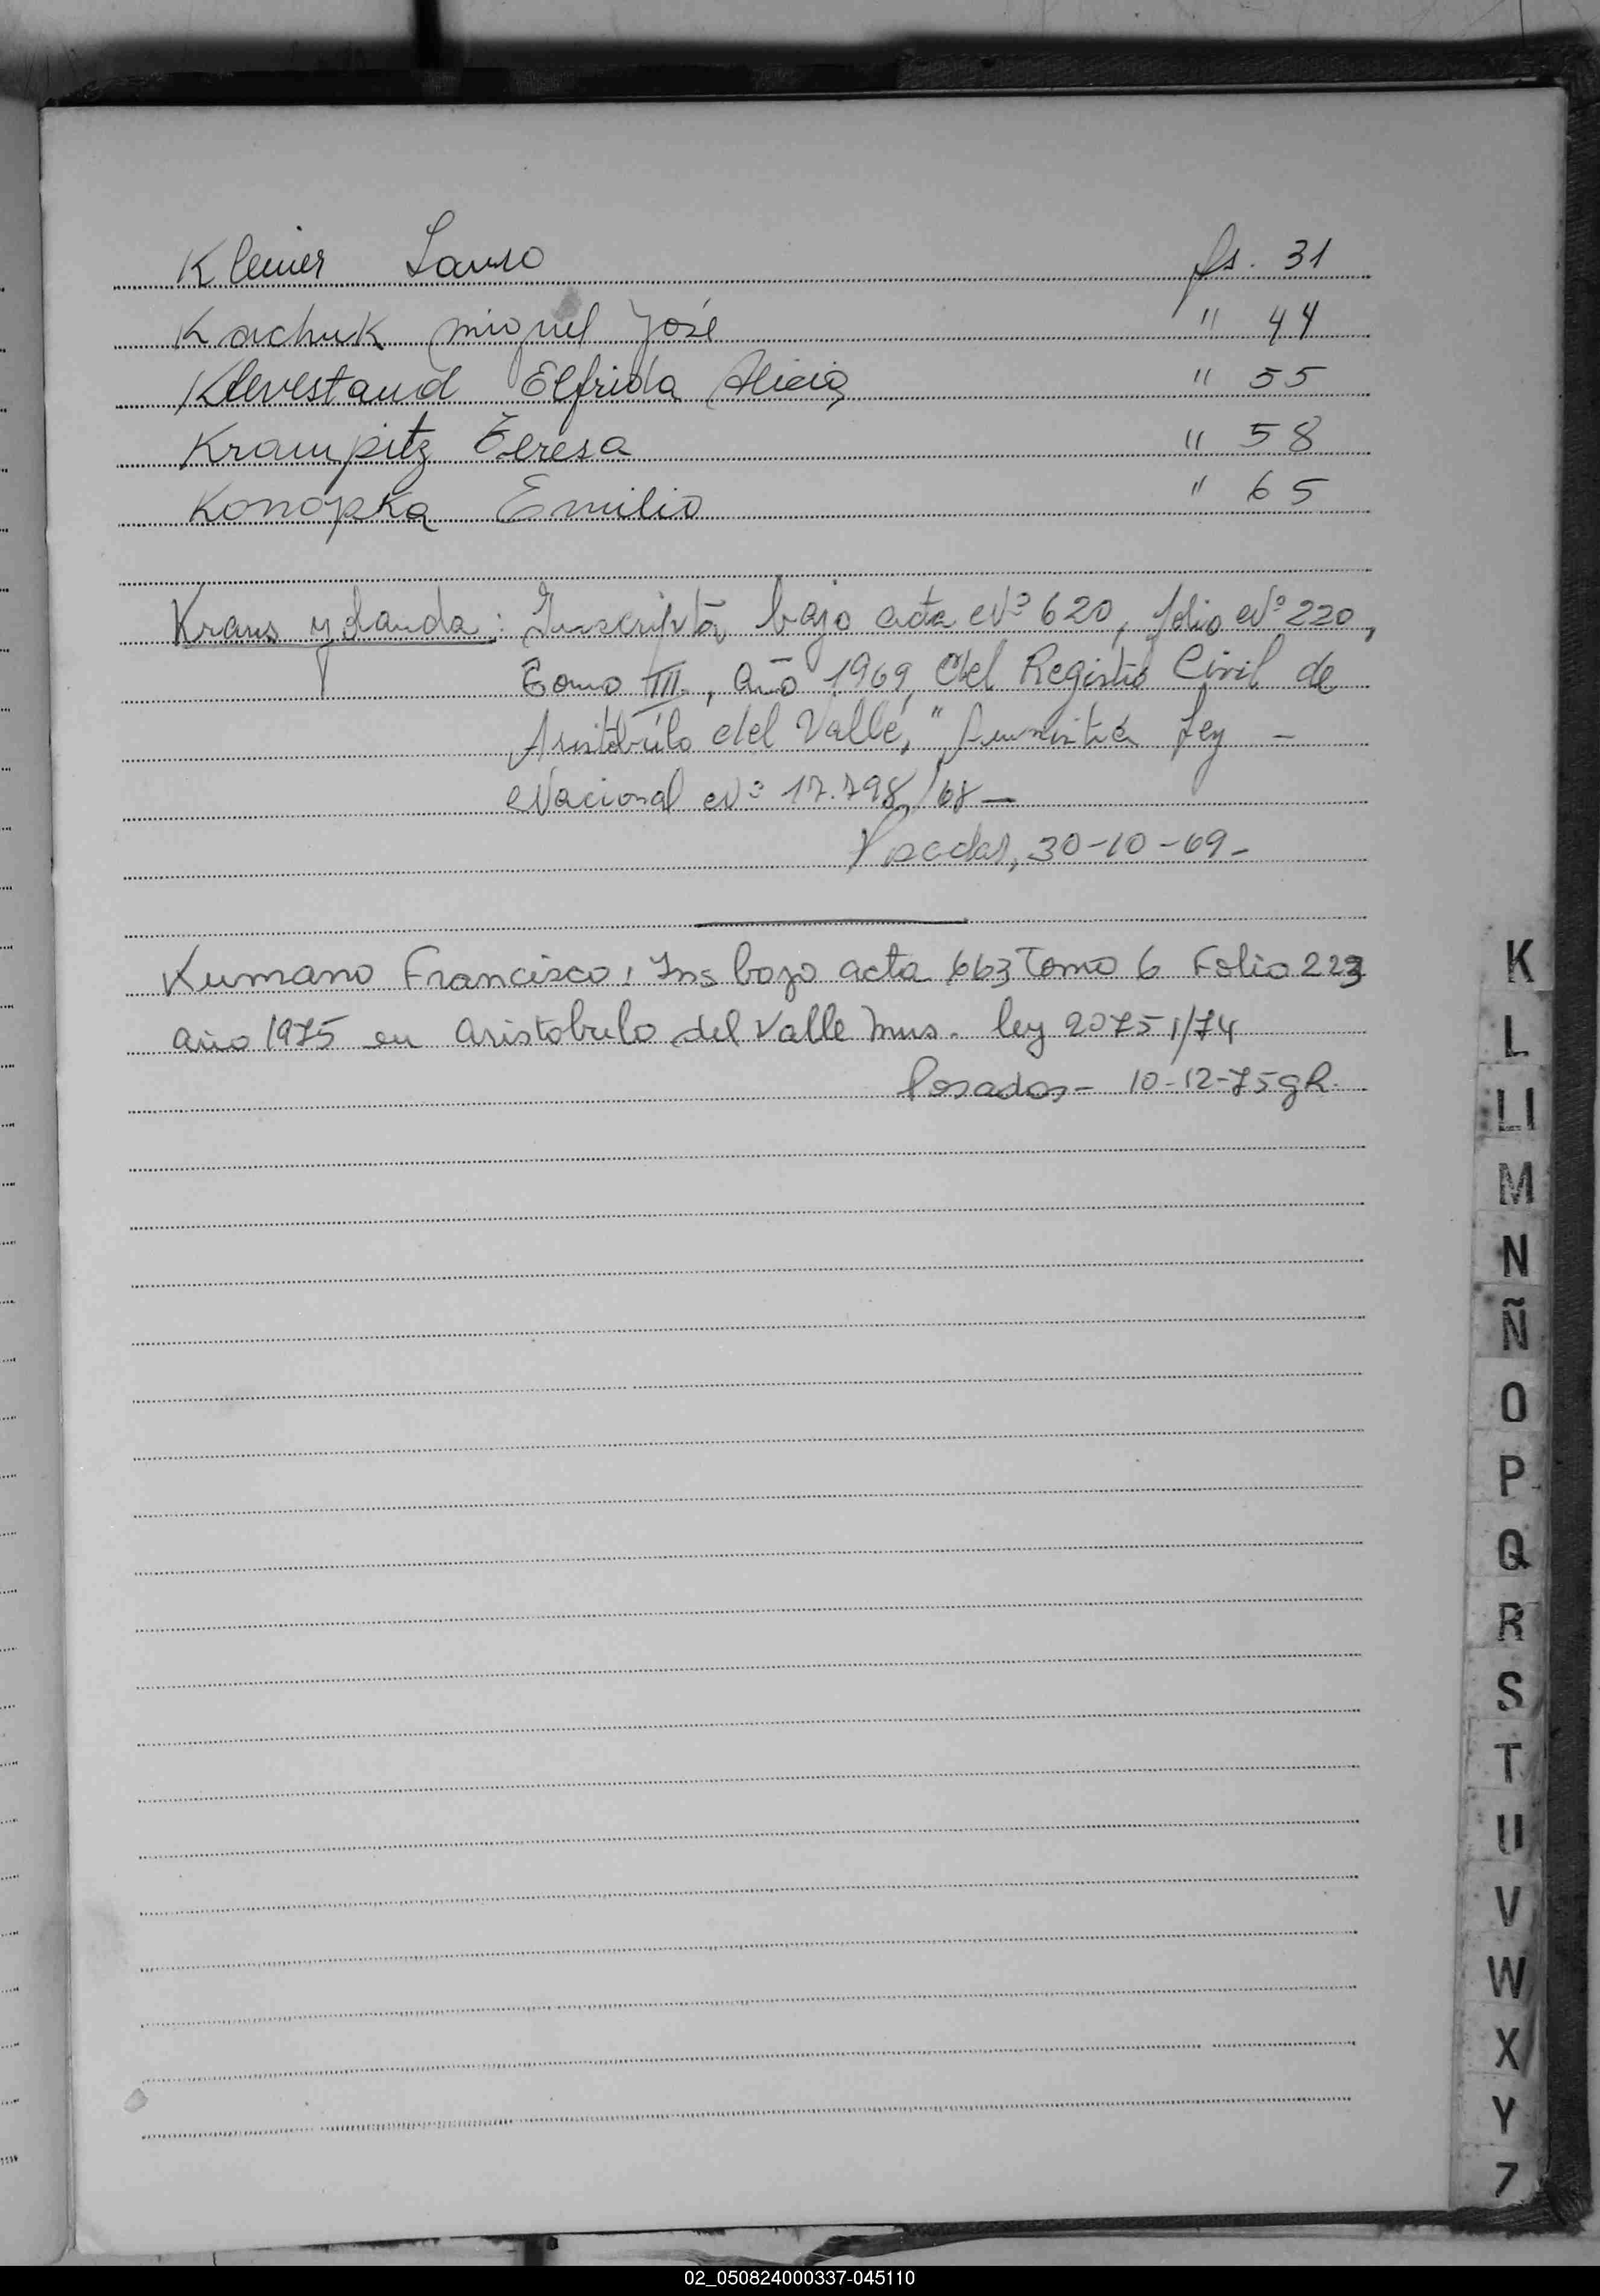 Kleiner Lauro fs. 31
Kachuk Miguel José " 44
Klevestaud Elfrida Alicia " 55
Krampitz Teresa " 58
Konopka Emilio " 65
Kraus Yolanda: Inscripta bajo acta Nº 620, folio Nº 220,
Tomo III, año 1969, del Registro Civil de
Aristóbulo del Valle, " Amnistia Ley -
Nacional Nº 17.798/68 -
Posadas, 30-10-69-
Kumano Francisco: Ins bajo acta 663 Tomo 6 Folio 223
año 1975 en Aristobulo del Valle Mns. ley 20751/74
Posadas- 10-12-75 gR.
K
L
Ll
M
N
Ñ
O
P
Q
R
S
T
U
V
W
X
Y
Z
02_050824000337-045110